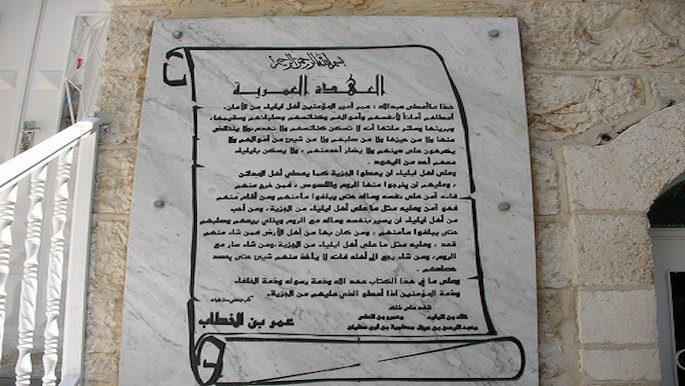 بسم الله الرحمن الرحيم
العهدة العمرية
هذا ما أعطى عبدالله : عمر أمير المؤمنين أهل ايلياء من الأمان،
أعطاهم أماناً لأنفسهم وأموالهم وكنائسهم وصلبانهم وسقيمها،
وبريئها وسائر ملتها أنه لا تسكن كنائسهم ولا تهدم ولا ينتقض
منها ولا من حيزها ولا من صليبهم ولا من شيئ من أموالهم ولا
يكرهون على دينهم ولا يضار أحد منهم ، ولا يسكن بايلياء
معهم أحد من اليهود .
وعلى أهل ايلياء أن يعطوا الجزية كما يعطي أهل المدائن
، وعليهم أن يخرجوا منها الروم واللصوت ، فمن خرج منهم
فانه آمن على نفسه وماله حتى يبلغوا مأمنهم ومن أقام منهم
فهو آمن وعليه مثل ما على أهل ايلياء من الجزية، ومن أحب
من أهل ايلياء أن يسير بنفسه وماله مع الروم ويخلي بيعهم وصلبهم
حتى يبلغوا مأمنهم ، ومن كان بها من أهل الأرض فمن شاء منهم
قعد ، وعليه مثل ما على أهل ايلياء من الجزية،ومن شاء سار مع
الروم، ومن شاء رجع الى أهله فانه لا يأخذ منهم شيئ حتى يحصد
حصادهم .
وعلى ما في هذا الكتاب عهد الله وذمة رسوله وذمة الخلفاء
وذمة المؤمنين اذا أعطوا الذي عليهم من الجزية.
شهد على ذلك
خالد بن الوليد وعمرو بن العاص
وعبد الرحمن بن عوف ومعاوية بن أبي سفيان
عمر بن الخطاب